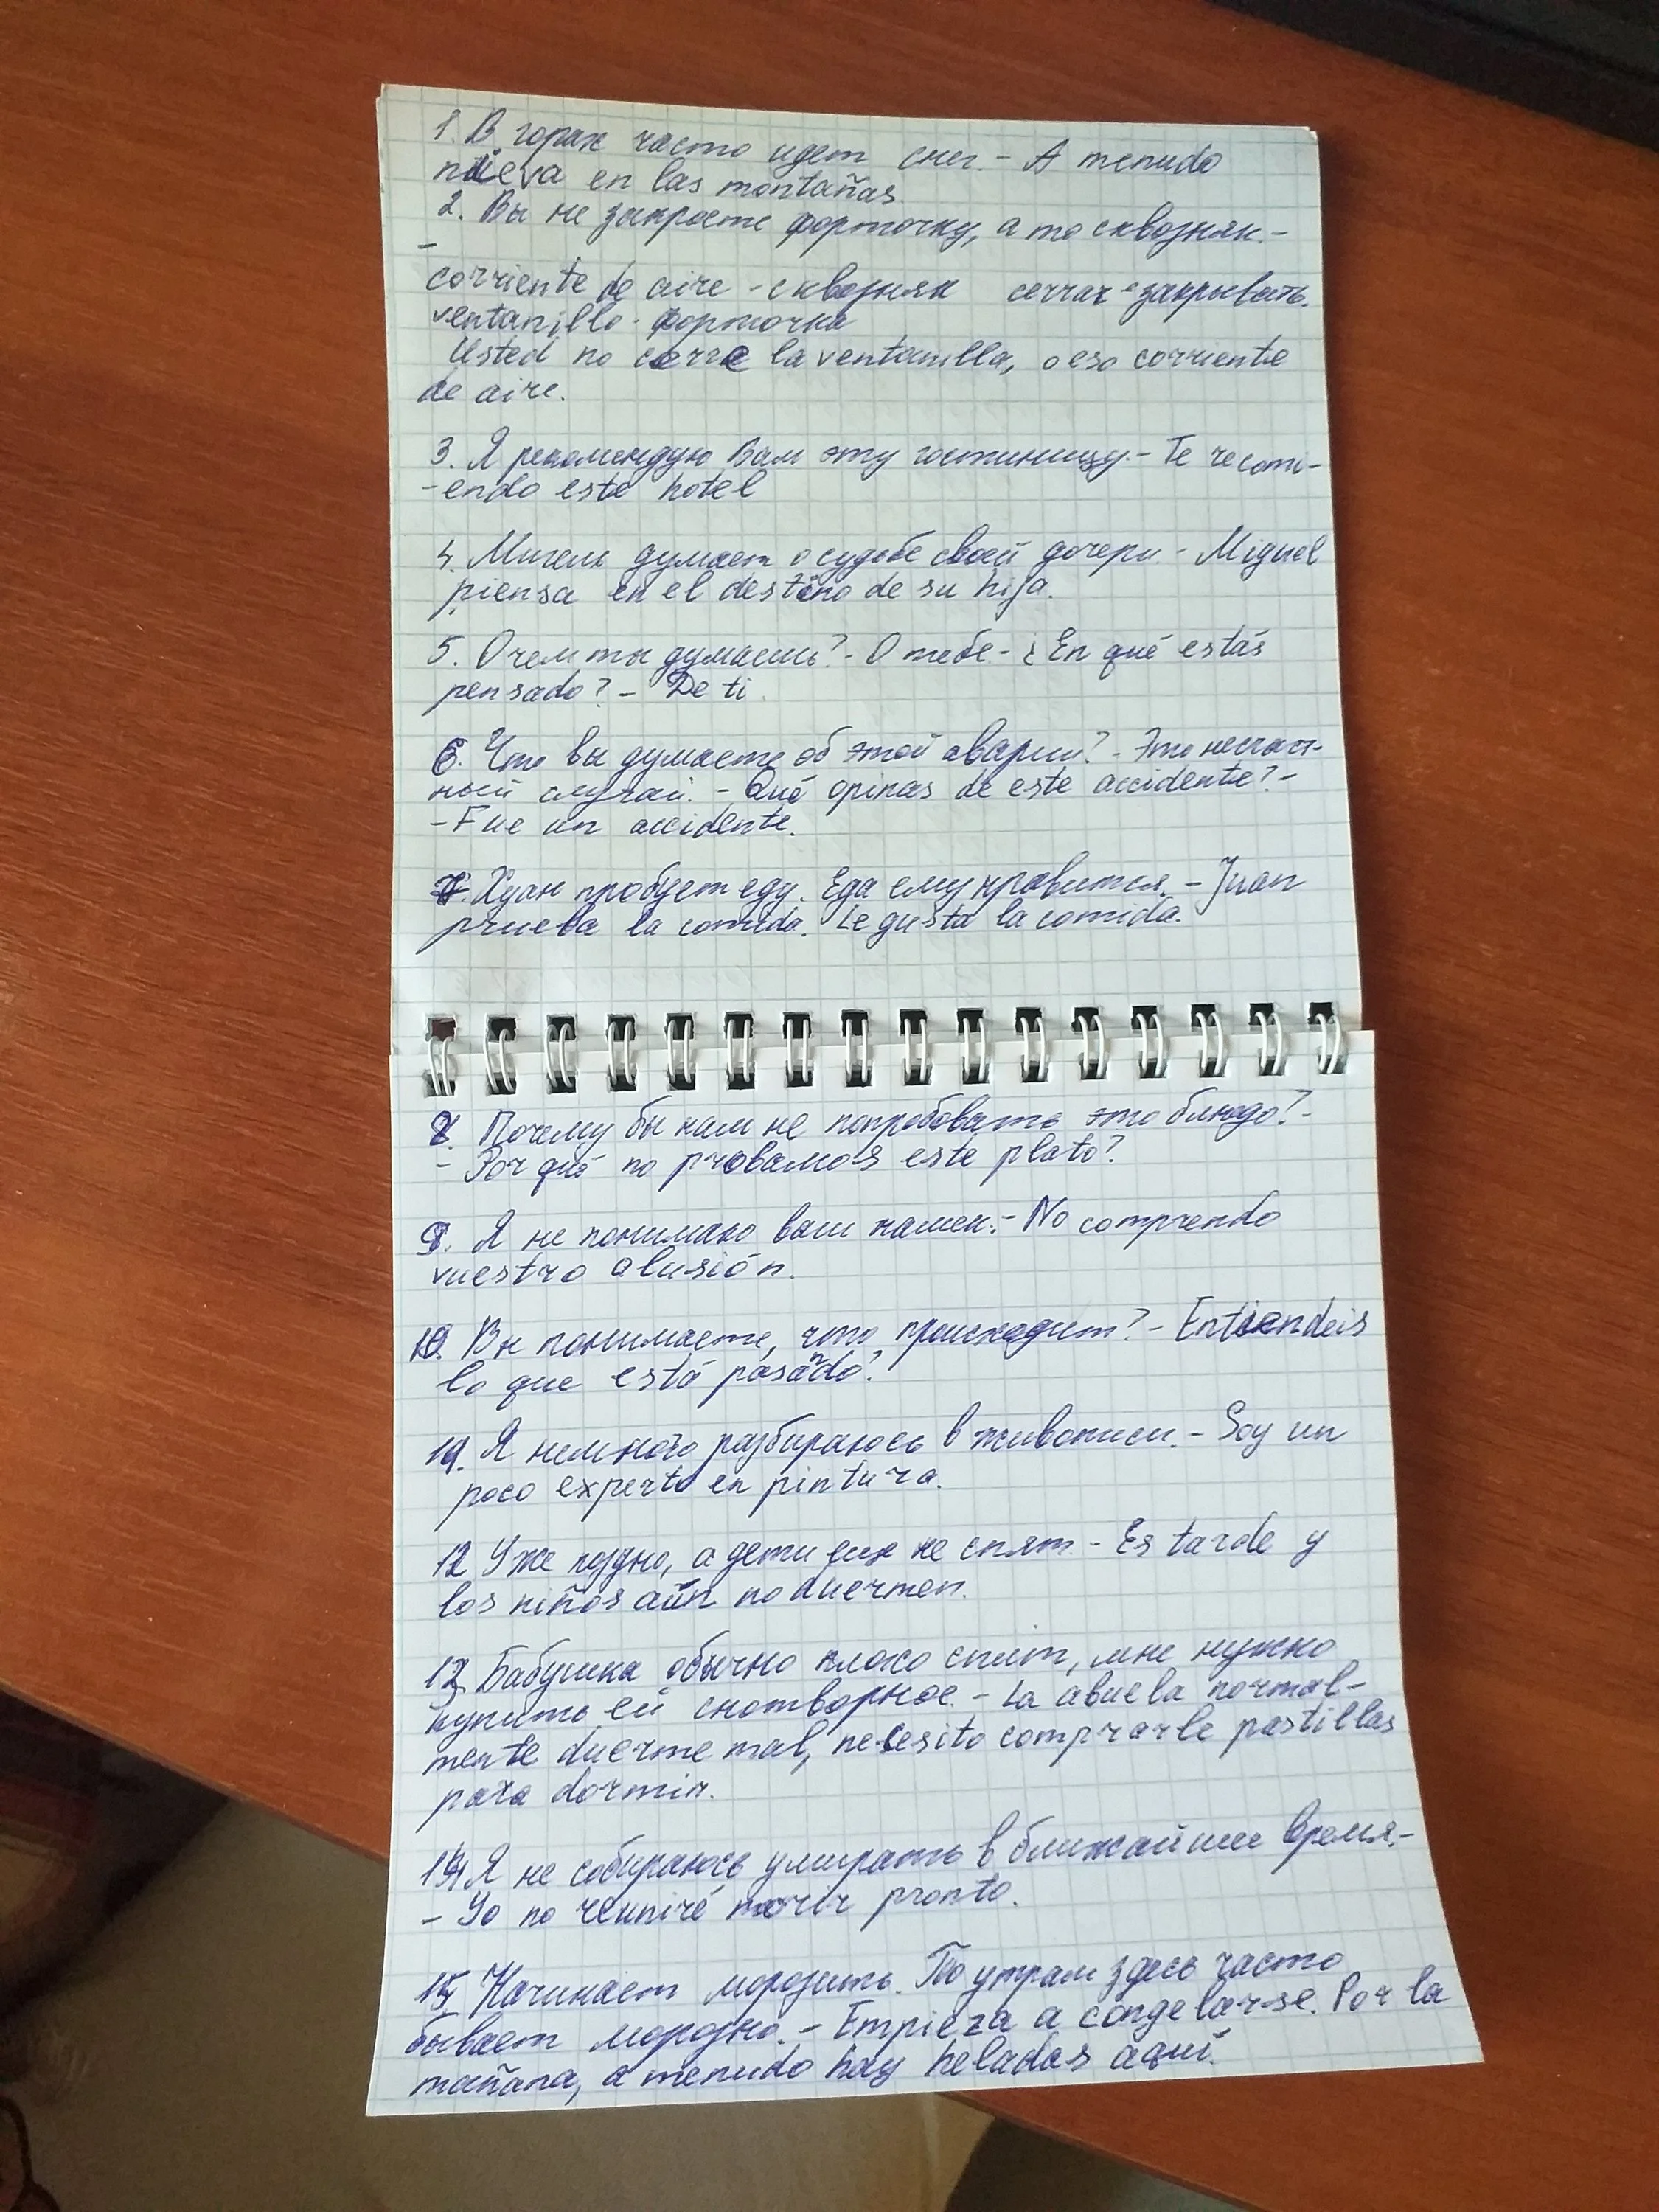 1. В горах часто идет снег. - A menudo
nieva en las montañas.
2. Вы не закроете форточку, а то сквозняк. -
-
corriente de aire - сквозняк cerrar - закрывать
ventanillo - форточка
Usted no cerre la ventanilla, o eso corriente
de aire.
3. Я рекомендую Вам эту гостиницу. - Te recomi-
-endo este hotel
4. Мигель думает о судьбе своей дочери. - Miguel
piensa en el destino de su hija.
5. О чем ты думаешь? - О тебе - ¿En qué estás
pensado? - De ti.
6. Что вы думаете об этой аварии? - Это несчаст-
ный случай. - Qué opinas de este accidente? -
- Fue un accidente.
7. Хуан пробует еду. Еда ему нравится. - Juan
prueba la comida. Le gusta la comida.
8. Почему бы нам не попробовать это блюдо? -
- Por qué no provamos este plato?
9. Я не понимаю ваш намек. - No comprendo
vuestro alusión.
10. Вы понимаете, что происходит? - Entiendeis
lo que está pasando?
11. Я немного разбираюсь в живописи. - Soy un
poco experto en pintura.
12. Уже поздно, а дети еще не спят. - Es tarde y
los niños aún no duermen.
13. Бабушка обычно плохо спит, мне нужно
купить ей снотворное. - La abuela normal-
mente duerme mal, necesito comprarle pastillas
para dormir.
14. Я не собираюсь умирать в ближайшее время. -
- Yo no reuniré morir pronto.
15. Начинает морозить. По утрам здесь часто
бывает морозно. - Empieza a congelarse. Por la
mañana, a menudo hay heladas aquí.